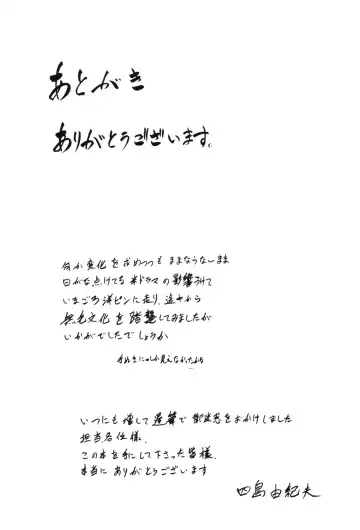 あとがき
ありがとうございます。
何か変化を求めつつもままならないまま
日がな点けてる米ドラマの影響されて
いまごろ洋ピンに走り、迄やから
無毛文化を踏襲してみましたが
いかがでしたでしょうか
手ぬきにしか見えなかったから
いつにも増して遅筆で御迷惑をおかけしました
担当各位様、
この本を手にして下さった皆様、
本当にありがとうございます
四島由紀夫